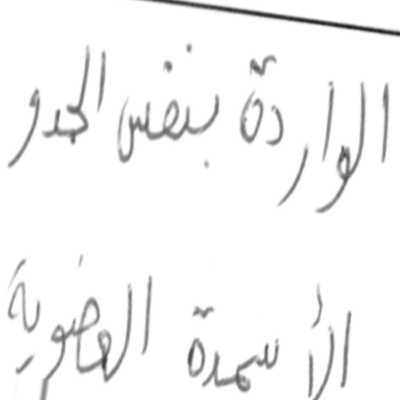 الواردة بنفس الجدو
الأسمدة العضوية